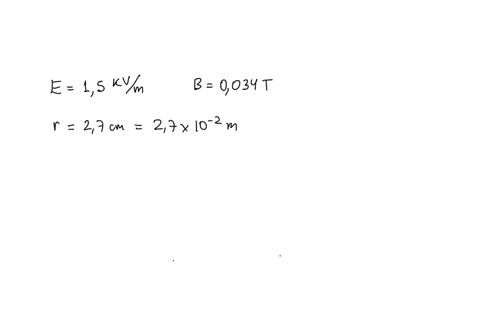 E = 1,5 KV/m B = 0,034 T
r = 2,7 cm = 2,7 × 10⁻² m